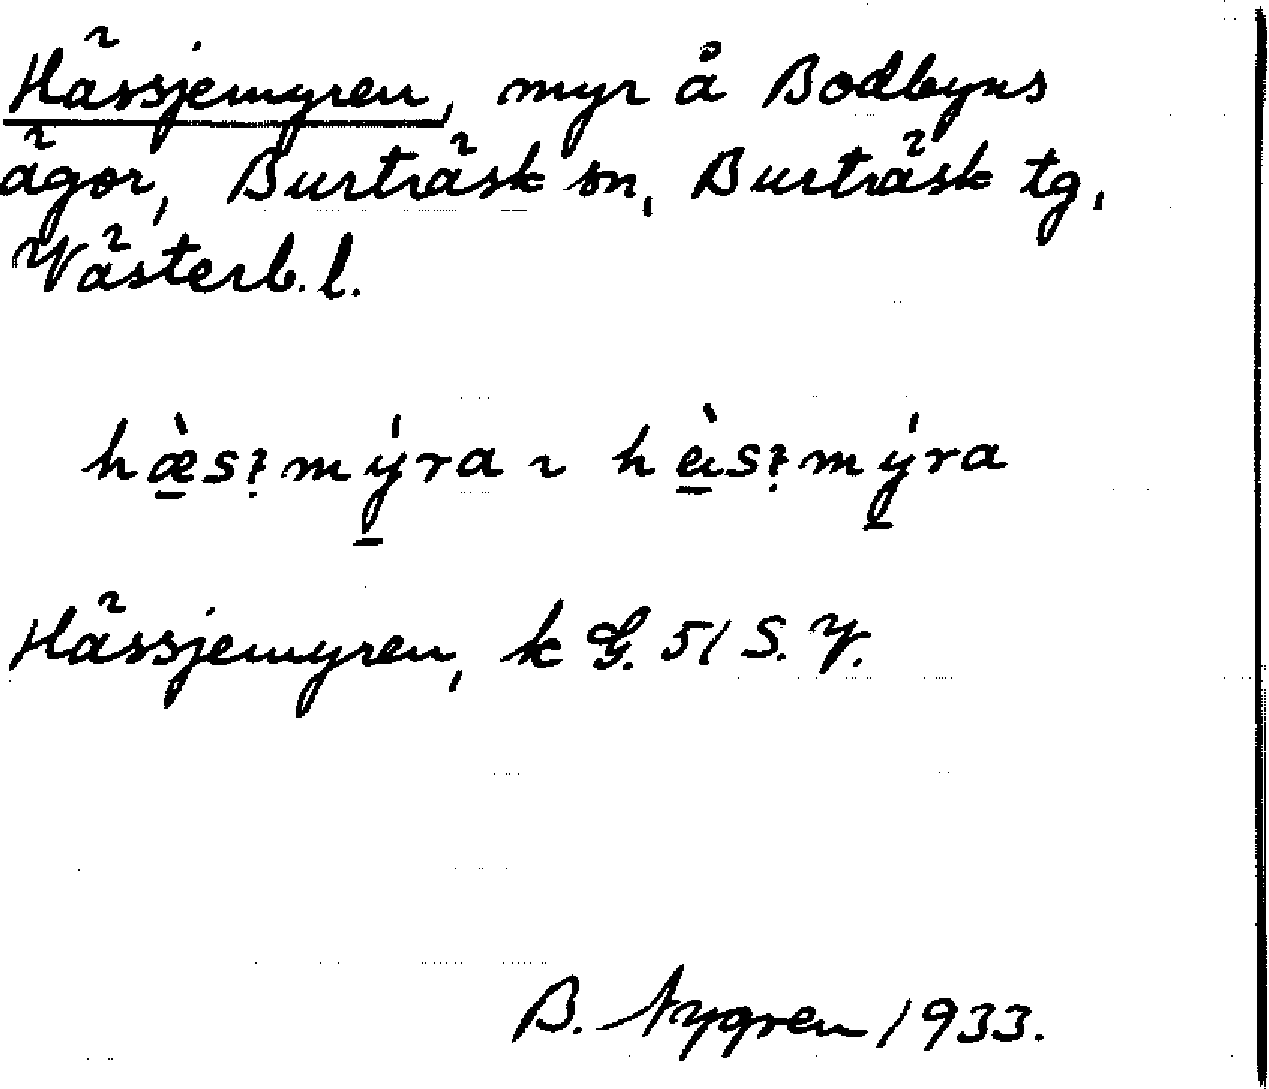 Hässjemyren, myr å Bodbyns
ägor, Burträsk sn, Burträsk tg,
Västerb. l.
Hässjemyren, k G. 51 S. V.
B. Nygren 1933.